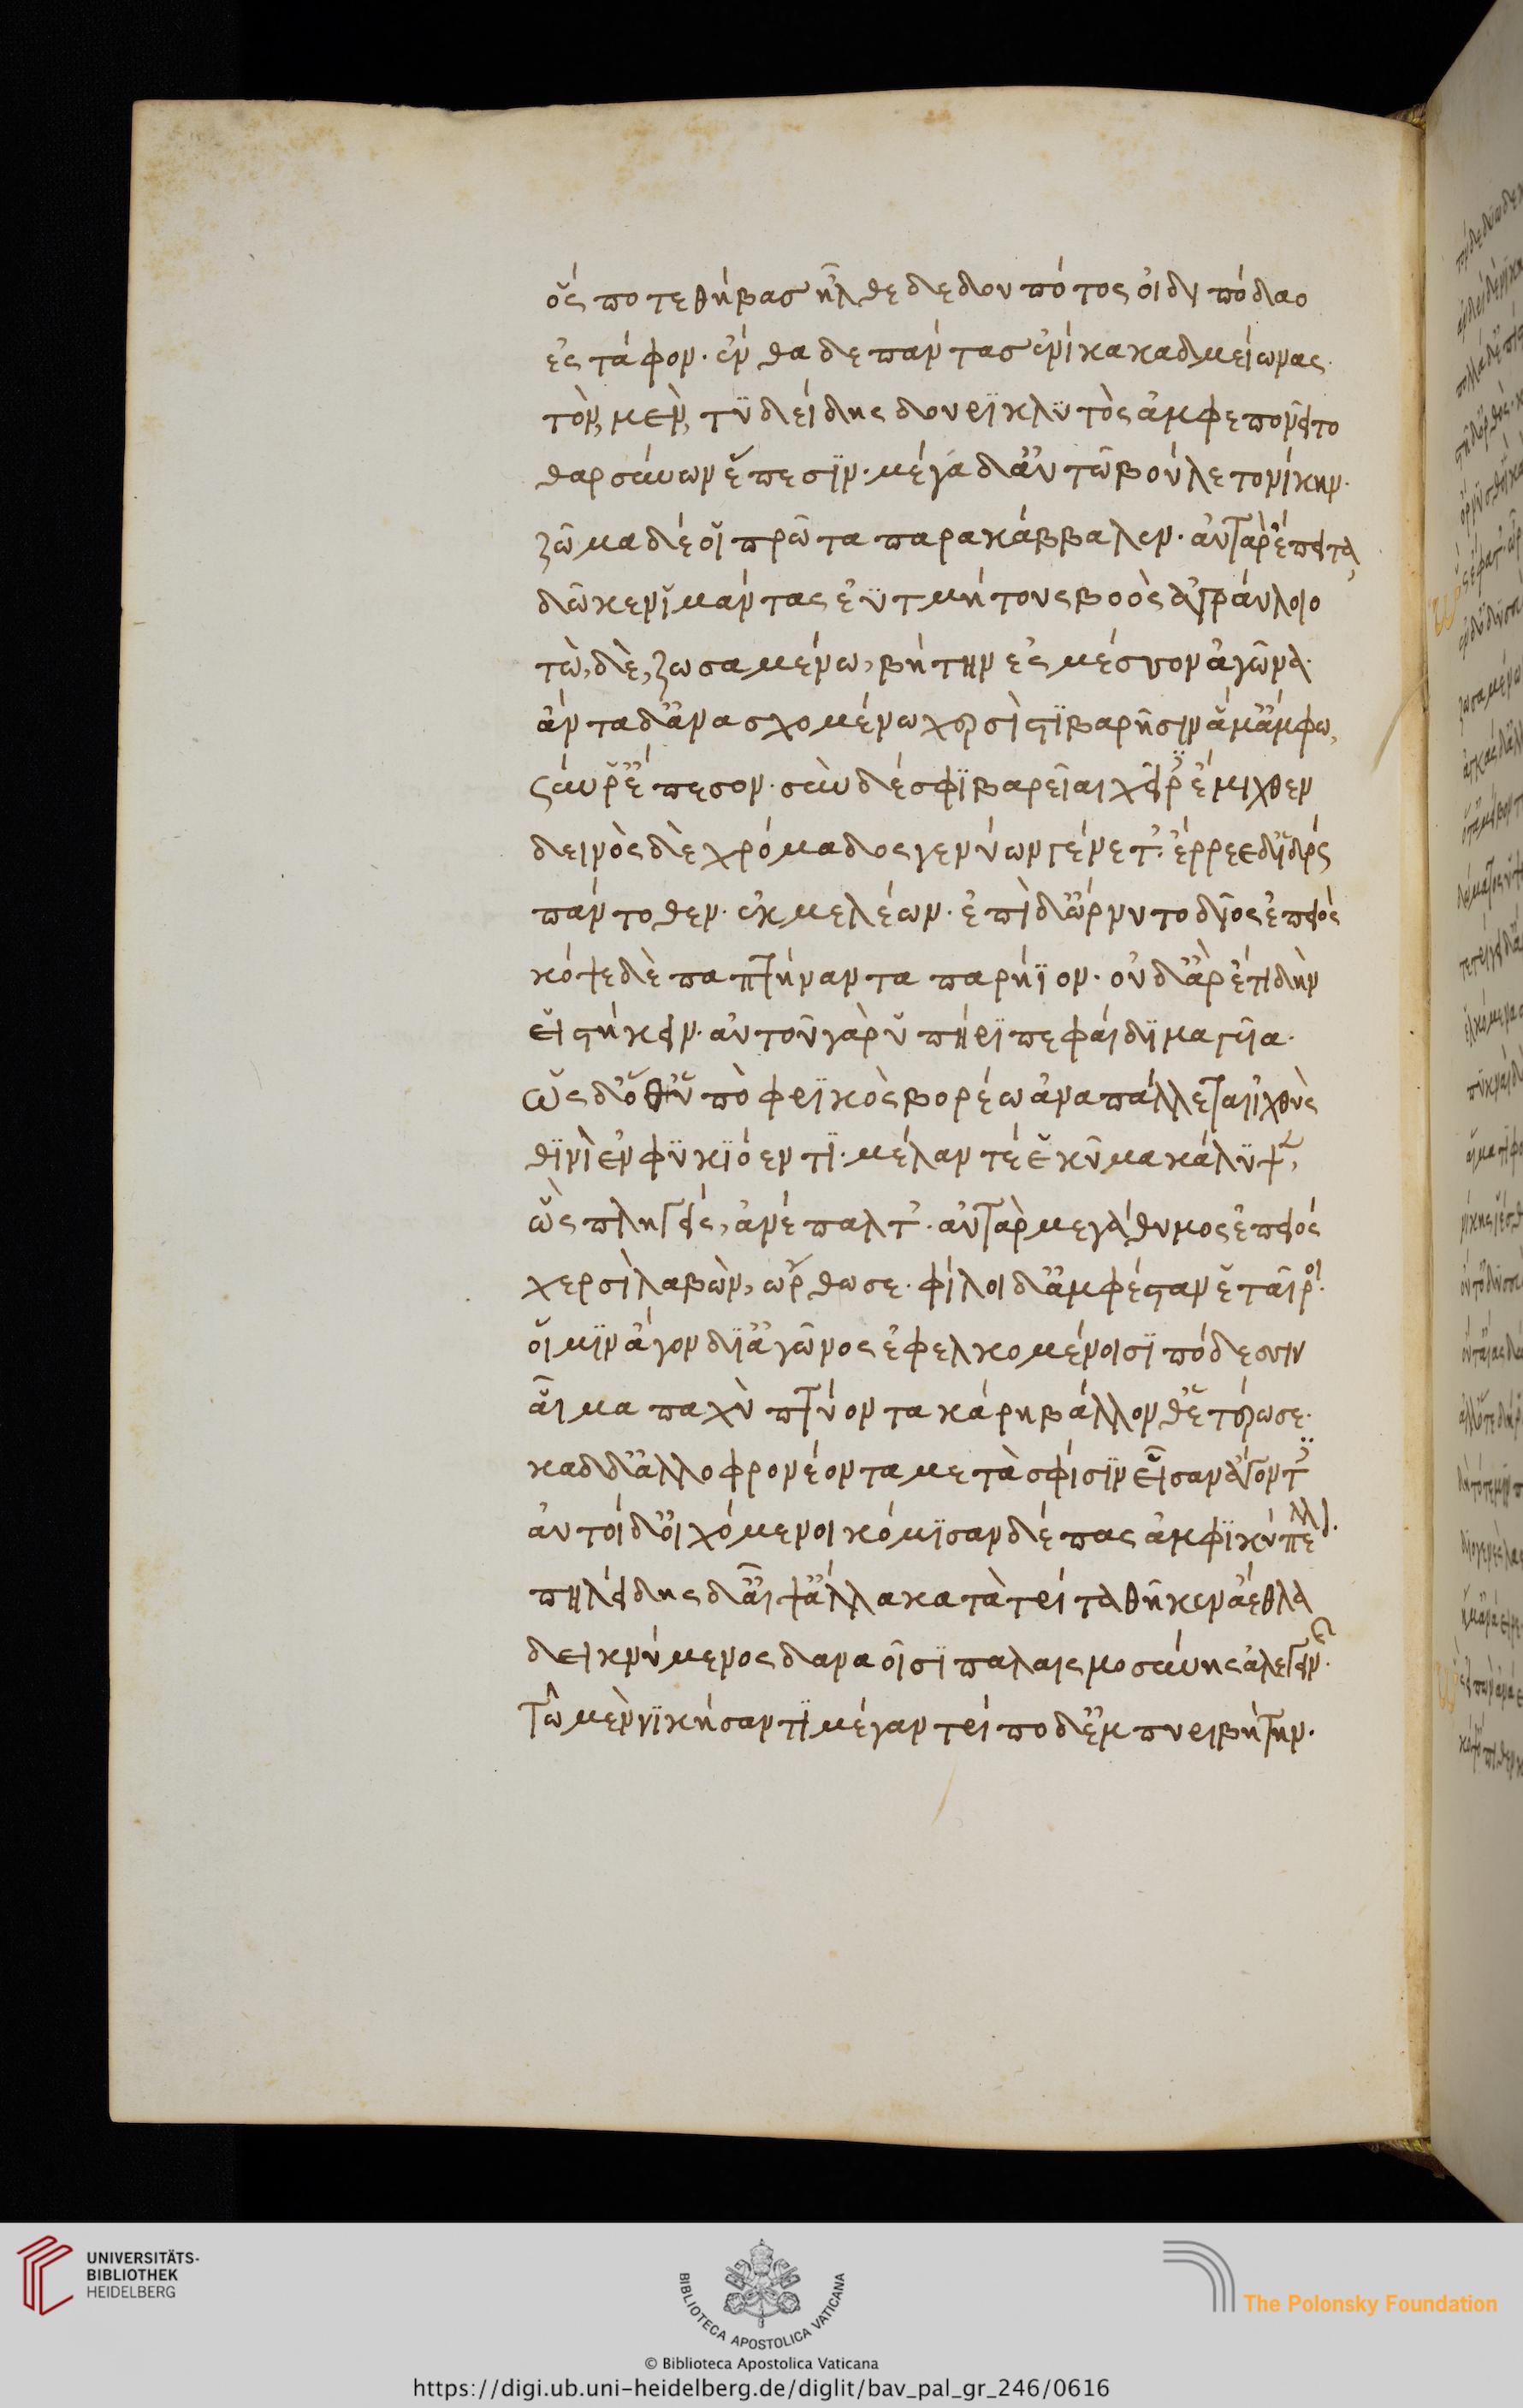 ὅς ποτε θήβας ἦλθε δεδουπότος οἰδιπόδαο
ἐς τάφον· ἔνθα δε πάντας ἐνίκα καδμείωνας·
τὸν, μὲν, τϋδείδης δουρϊκλϋτὸς ἀμφεπονεῖτο
θαρσύνων ἔπεσϊν· μέγα δ' αὐτῶ βούλετο νίκην·
ζῶμα δέ οἵ πρῶτα παρακάββαλεν· αὐτὰρ ἔπειτα,
δῶκεν ἵμάντας ἐϋτμήτους βοὸς ἀγραύλοιο
τὼ, δὲ, ζωσαμένω, βήτην ἐς μέσσον ἀγῶνα·
ἄντα δ' ἀνασχομένω χερσὶ στϊβαρῆσιν ἅμ' ἄμφω,
σύν ῥ' ἔπεσον· σὺν δέ σφϊ βαρεῖαι χεῖρες ἔμιχθεν
δεινὸς δὲ χρόμαδος γενύων γένετ'· ἔρρεε δ' ἵδρώς
πάντοθεν· ἐκ μελέων· ἐπὶ δ' ὤρνυτο δῖος ἐπειὸς
κόψε δὲ παπτήναντα παρήϊον· οὐδ' ἄρ ἔτι δὴν
εἵστήκειν· αὐτοῦ γὰρ ὕπήρϊπε φαίδϊμα γυῖα·
ὡς δ' ὅθ' ὕπὸ φρϊκὸς βορέω ἀναπάλλεται ἰχθὺς
θϊνὶ ἐν φϋκϊόεντϊ· μέλαν τέ ἑ κῦμα κάλϋψε,
ὣς πληγεὶς, ἀνέπαλτ'· αὐτὰρ μεγάθυμος ἐπειός
χερσὶ λαβὼν, ὤρθωσε· φίλοι δ' ἀμφέσταν ἑταῖροι·
οἵ μϊν ἄγον δϊ' ἀγῶνος ἐφελκομένοισϊ πόδεσσιν
αἷμα παχὺ πτύοντα κάρη βάλλονθ' ἑτέρωσε·
καδδ' ἀλλοφρονέοντα μετὰ σφίσϊν εἷσαν ἄγοντες
αὐτοὶ δ' οἰχόμενοι κόμϊσαν δέπας ἀμφϊκύπελλον·
πηλείδης δ' αἶψ' ἄλλα κατὰ τρίτα θῆκεν ἄεθλα
δεικνύμενος δαναοῖσϊ παλαισμοσύνης ἀλεγεινῆς·
Τῶ μὲν νϊκήσαντϊ μέγαν τρίποδ' ἐμπυριβήτην·
UNIVERSITÄTS-
BIBLIOTHEK
HEIDELBERG
BIBLIOTECA APOSTOLICA VATICANA
The Polonsky Foundation
© Biblioteca Apostolica Vaticana
https://digi.ub.uni-heidelberg.de/diglit/bav_pal_gr_246/0616